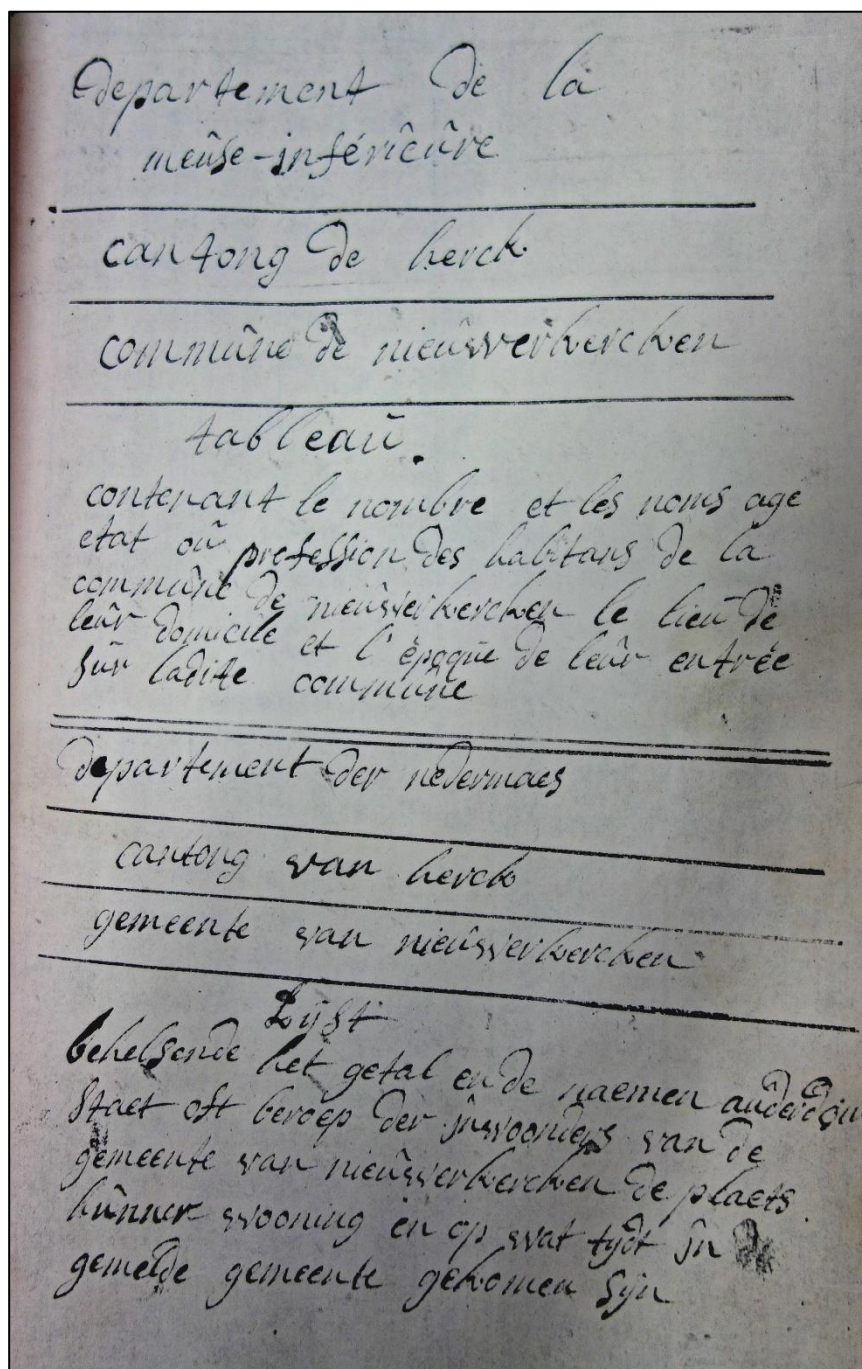 departement de la
meûse-inférieûre
cantong de herck
commûne de nieûwerkercken
tableaû.
contenant le nombre et les noms age
etat oû profession des habitans de la
commûne de nieûwerkercken le lieû de
leûr domicile et l'époqûe de leûr entrée
sûr ladite commûne
departement der nedermaes
cantong van herck
gemeente van nieûwerkercken
Lijst
behelsende het getal ende naemen
staet oft beroep der jnwoonders van de
gemeente van nieûwerkercken de plaets
hûnner wooning en op wat tijdt jn
gemelde gemeente gekomen sijn